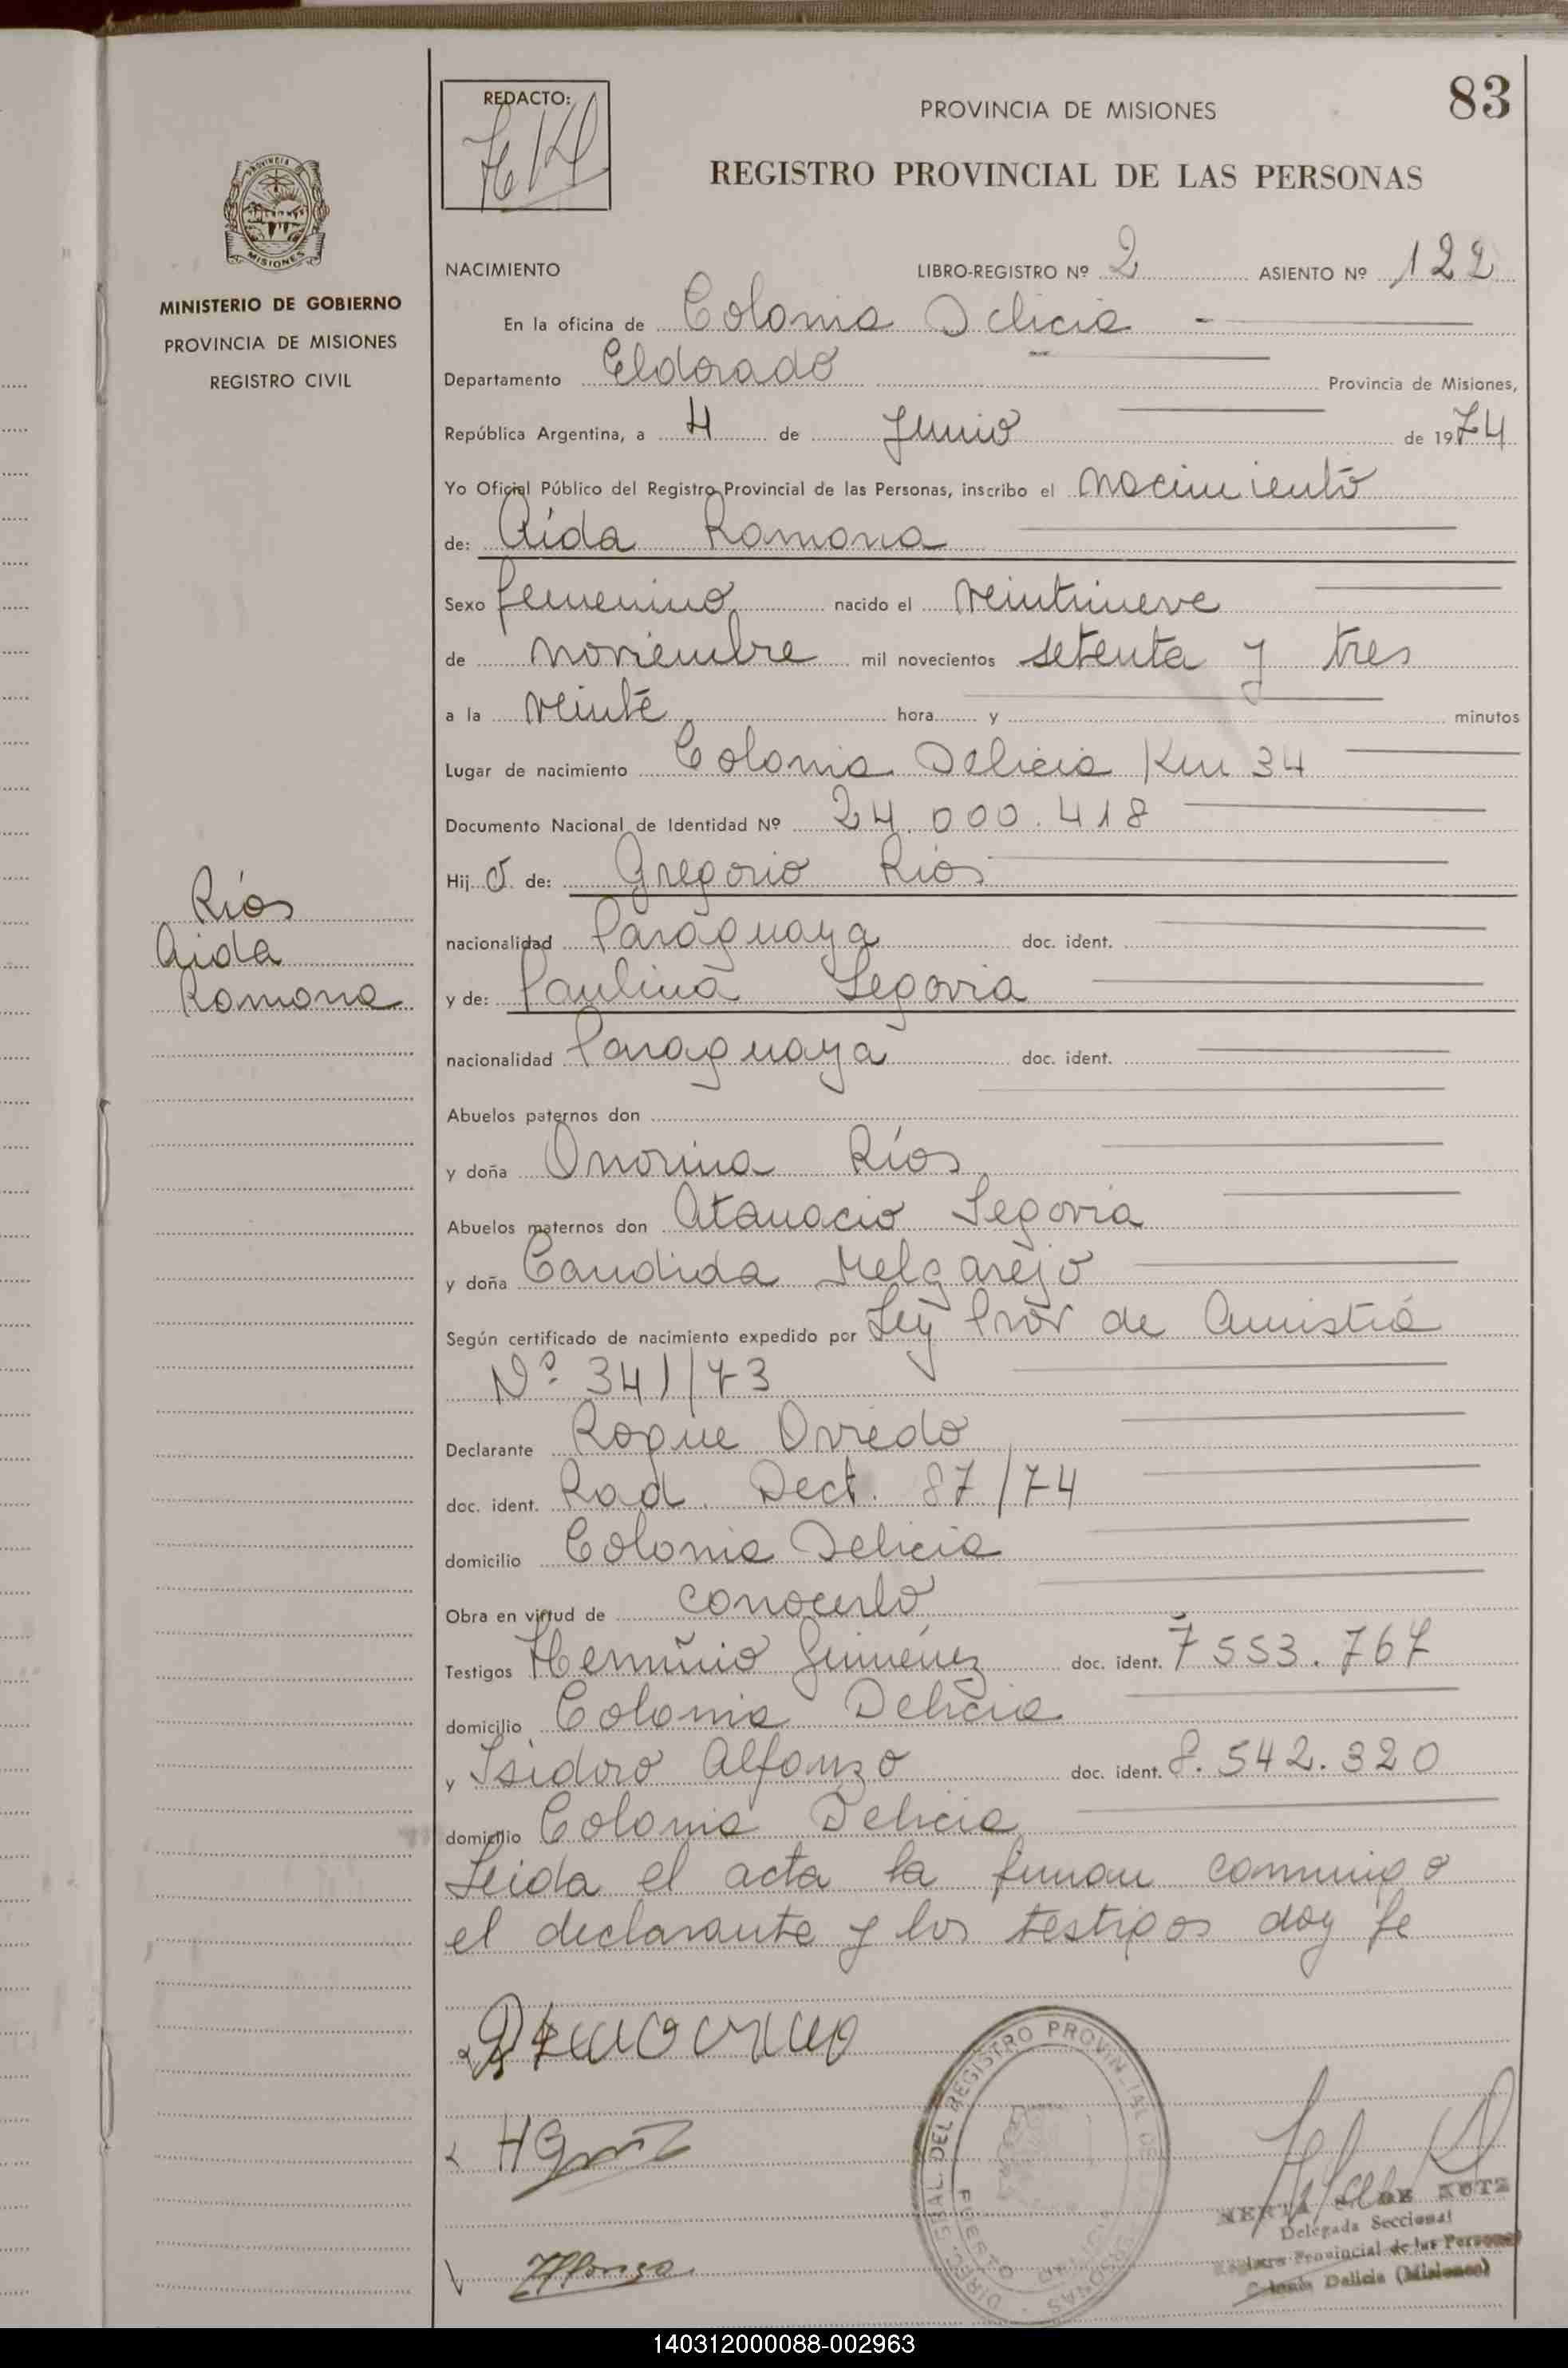 83
REDACTO:
PROVINCIA DE MISIONES
REGISTRO PROVINCIAL DE LAS PERSONAS
PROVINCIA
MISIONES
MINISTERIO DE GOBIERNO
PROVINCIA DE MISIONES
REGISTRO CIVIL
Ríos
Aida
Ramona
NACIMIENTO LIBRO-REGISTRO Nº 2 ASIENTO Nº 122
En la oficina de Colonia Delicia
Departamento Eldorado Provincia de Misiones,
República Argentina, a 4 de Junio de 1974
Yo Oficial Público del Registro Provincial de las Personas, inscribo el nacimiento
de: Aida Ramona
Sexo femenino nacido el veintinueve
de noviembre mil novecientos setenta y tres
a la veinte hora y minutos
Lugar de nacimiento Colonia Delicia Km 34
Documento Nacional de Identidad Nº 24.000.418
Hij a de: Gregorio Ríos
nacionalidad Paraguaya doc. ident.
y de: Paulina Segovia
nacionalidad Paraguaya doc. ident.
Abuelos paternos don
y doña Onorina Ríos
Abuelos maternos don Atanacio Segovia
y doña Candida Melgarejo
Según certificado de nacimiento expedido por Ley Prov de Amistía
Nº 341/73
Declarante Roque Oviedo
doc. ident. Rad. Dect. 87/74
domicilio Colonia Delicia
Obra en virtud de conocerlo
Testigos Herminio Gimenez doc. ident. 7.553.767
domicilio Colonia Delicia
y Isidoro Alfonzo doc. ident. 8.542.320
domicilio Colonia Delicia
Leida el acta la firman conmigo
el declarante y los testigos doy fe
DEL REGISTRO PROVINCIAL DE
Alfonso
DE KUTZ
Delegada Seccional
Registro Provincial de las Personas
Colonia Delicia (Misiones)
140312000088-002963